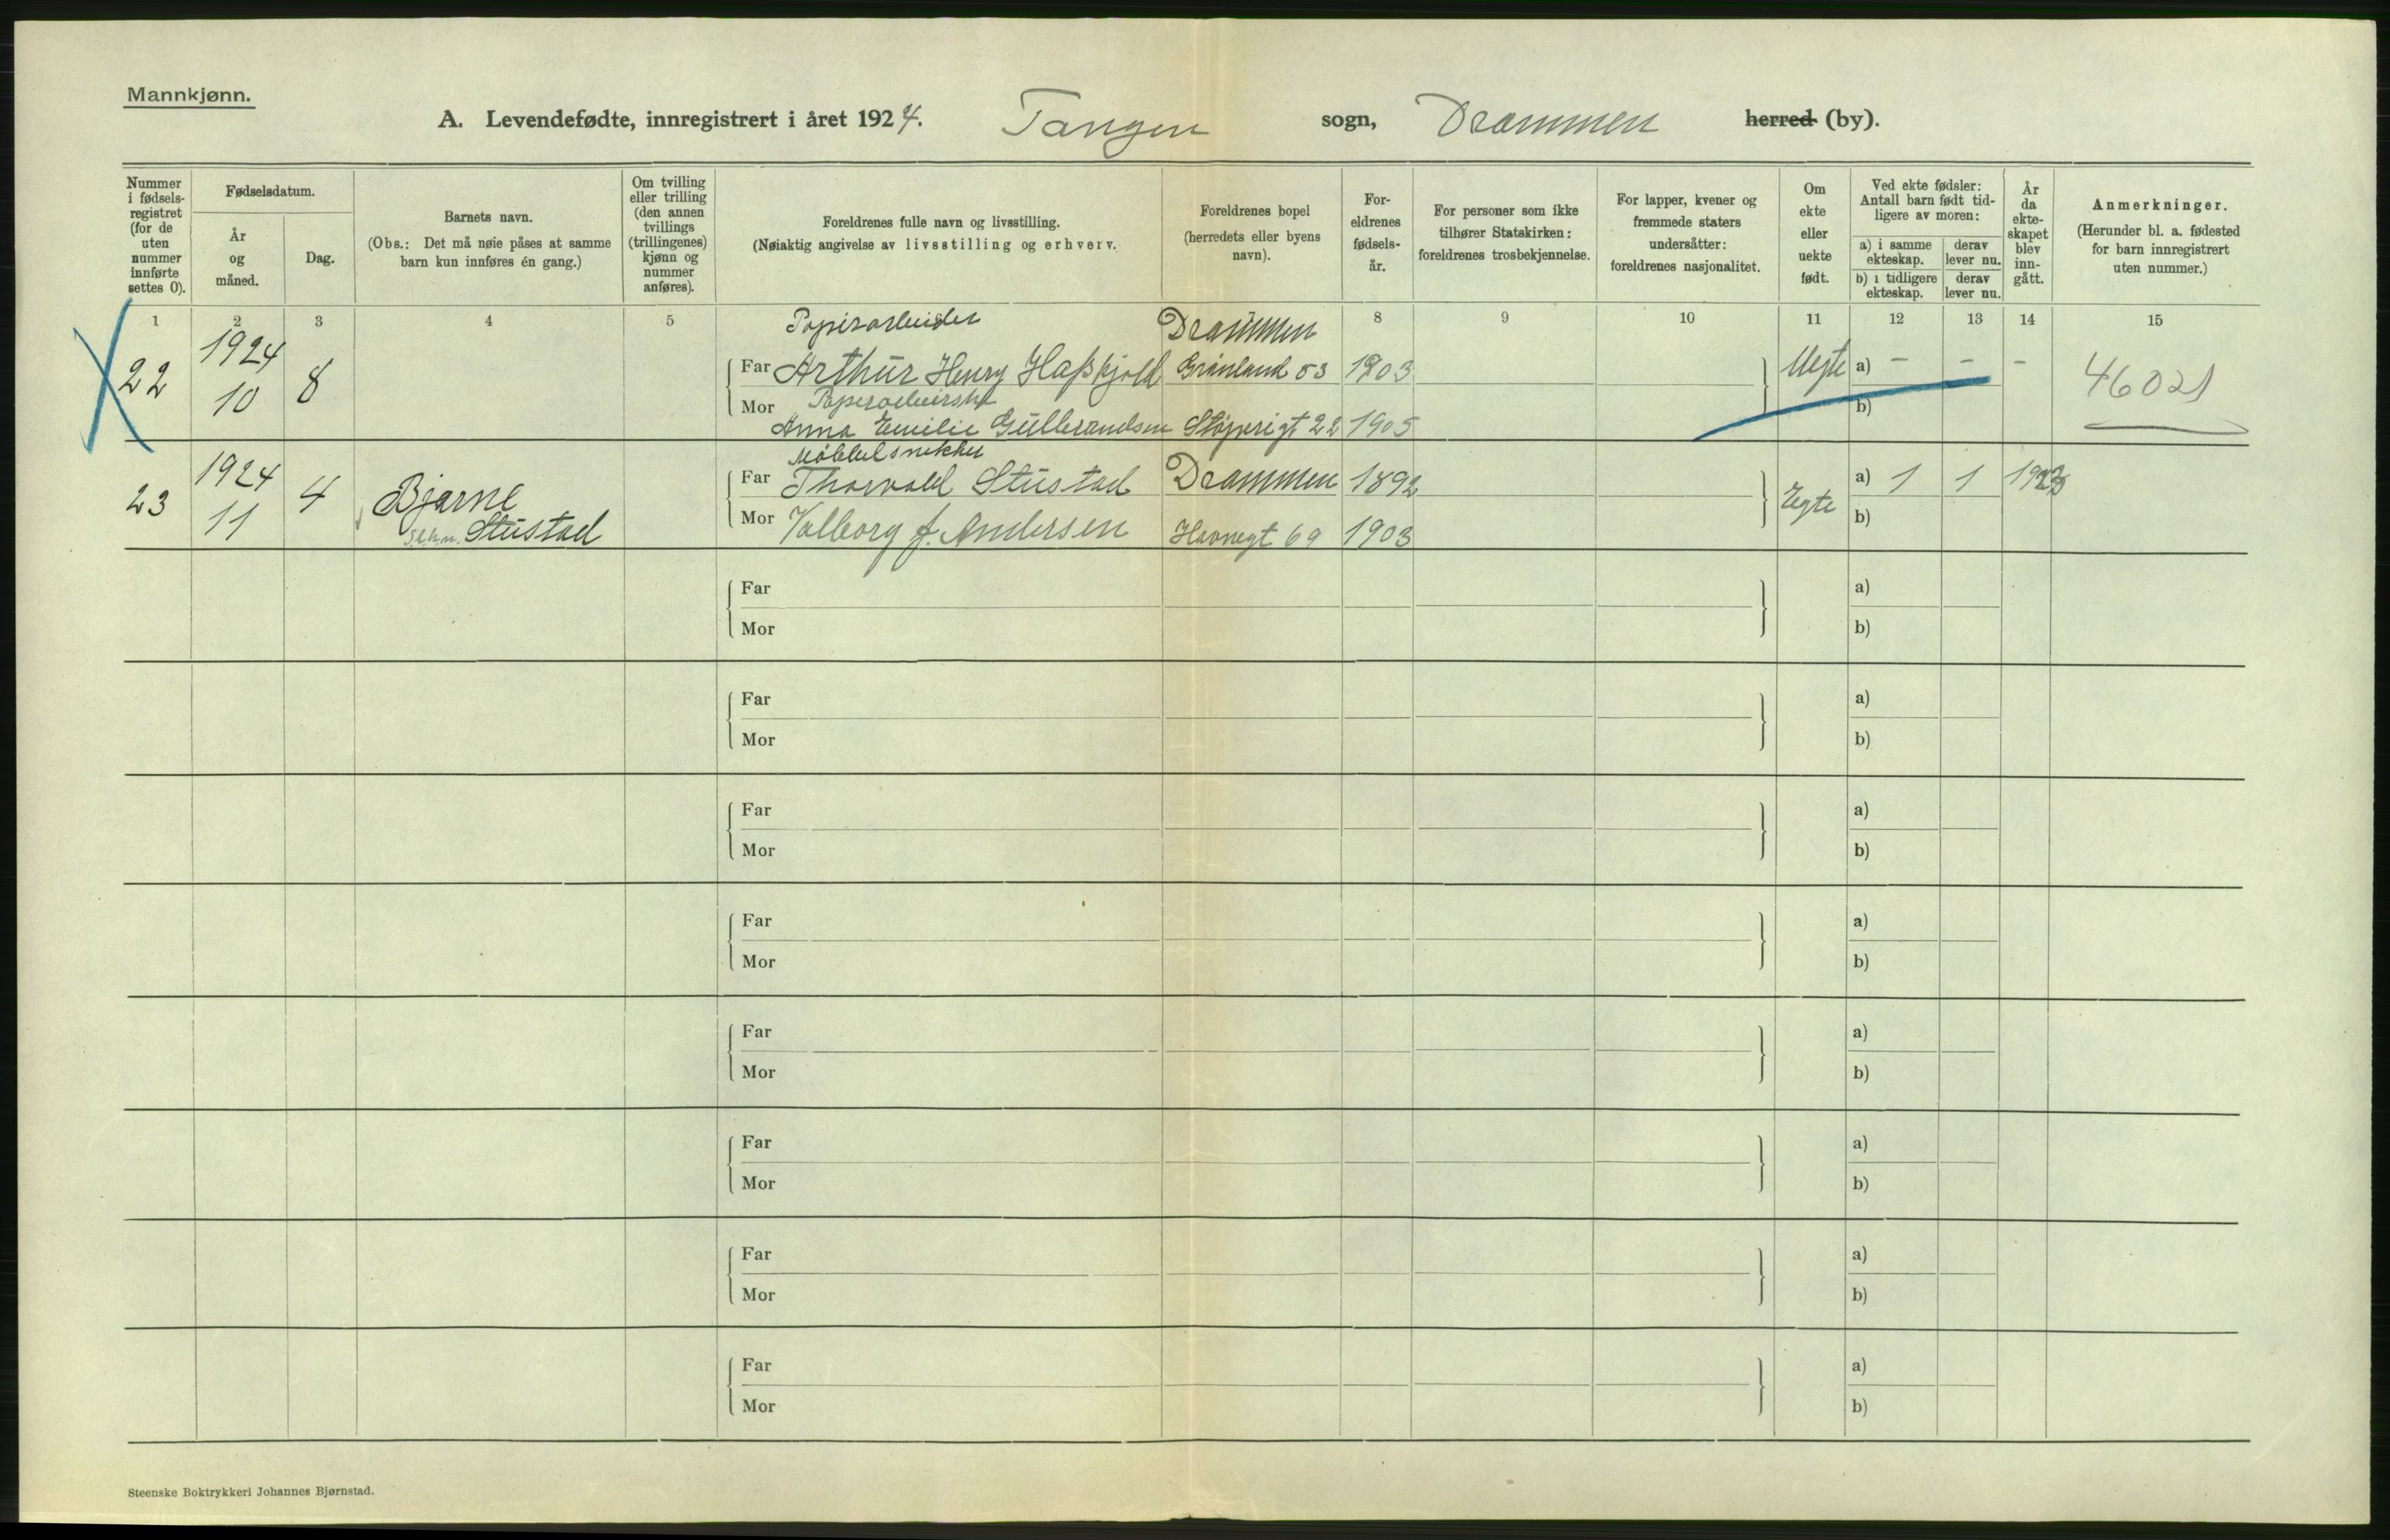 Mannkjønn.
A. Levendefødte, innregistrert i året 1924. Tangen sogn, Drammen herred (by).
Nummer i fødselsregistret (for de uten nummer innførte settes 0).
Fødselsdatum.
År og måned.
Dag.
Barnets navn.
(Obs.: Det må nøie påses at samme barn kun innføres én gang.)
Om tvilling eller trilling (den annen tvillings (trillingenes) kjønn og nummer anføres).
Foreldrenes fulle navn og livsstilling.
(Nøiaktig angivelse av livsstilling og erhverv.
Foreldrenes bopel (herredets eller byens navn).
Foreldrenes fødselsår.
For personer som ikke tilhører Statskirken: foreldrenes trosbekjennelse.
For lapper, kvener og fremmede staters undersåtter: foreldrenes nasjonalitet.
Om ekte eller uekte født.
Ved ekte fødsler: Antall barn født tidligere av moren:
a) i samme ekteskap.
derav lever nu.
b) i tidligere ekteskap.
derav lever nu.
År da ekteskapet blev inngått.
Anmerkninger.
(Herunder bl. a. fødested for barn innregistrert uten nummer.)
1 2 3 4 5 8 9 10 11 12 13 14 15
Papirarbeider Drammen
22 1924 10 8
Far Arthur Henry Hasskjold Grønland 53 1903 Uegte a) - - -
46021
Mor
Anna Emilie Gulbrandsen 22 1905 b)
Møbbelsnekker
23 1924 11 4 Bjarne Stustad
Far Thorvald Stustad Drammen 1892 Egte a) 1 1
Mor Valborg f. Andersen Havnegt 69 1903 b)
Far a)
Mor b)
Far a)
Mor b)
Far a)
Mor b)
Far a)
Mor b)
Far a)
Mor b)
Far a)
Mor b)
Far a)
Mor b)
Far a)
Mor b)
Steenske Boktrykkeri Johannes Bjørnstad.